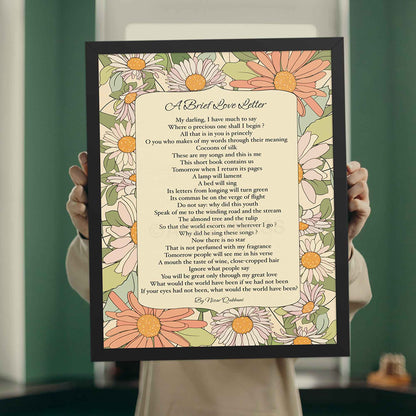 A Brief Love Letter
My darling, I have much to say
Where o precious one shall I begin ?
All that is in you is princely
O you who makes of my words through their meaning
Cocoons of silk
These are my songs and this is me
This short book contains us
Tomorrow when I return its pages
A lamp will lament
A bed will sing
Its letters from longing will turn green
Its commas be on the verge of flight
Do not say: why did this youth
Speak of me to the winding road and the stream
The almond tree and the tulip
So that the world escorts me wherever I go ?
Why did he sing these songs ?
Now there is no star
That is not perfumed with my fragrance
Tomorrow people will see me in his verse
A mouth the taste of wine, close-cropped hair
Ignore what people say
You will be great only through my great love
What would the world have been if we had not been
If your eyes had not been, what would the world have been?
By Nizar Qabbani